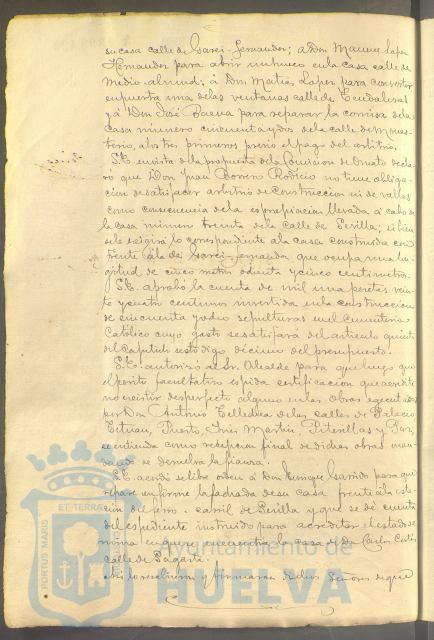 su casa calle de Garci-Fernandez; a Don Manuel Lopez
Hernandez para abrir un hueco en la casa calle de
Medio-almud; á Don Matias Lopez para convertir
en puerta una de las ventanas calle de
y á Don José Baeva para reparar la cornisa de la
casa número cincuenta y dos de la calle de Monas-
terio, a los tres primeros previo el pago del arbitrio.
S.E. en vista de la propuesta de la Comision de Ornato decla-
ró que Don Juan Borrero Rodicio no tiene obliga-
cion de satisfacer arbitrio de construccion ni de vallas
como consecuencia de la expropiacion llevada á cabo de
la casa número treinta de la calle de Sevilla; si bien
se le exigirá lo correspondiente á la casa construida con
frente á la de Garci-Fernandez que ocupa una lon-
gitud de cinco metros ochenta y cinco centimetros.
S.E. aprobó la cuenta de mil una pesetas vein-
te y cuatro centimos invertida en la construccion
de cincuenta y ocho sepulturas en el cementerio
Catolico cuyo gasto se satisfará del articulo quinto
del Capitulo sesto digo décimo del presupuesto.
S.E. autorizó al Sr. Alcalde para que luego que
el perito facultativo espida certificacion que acredite
no existir desperfecto alguno en las obras ejecutadas
por Dn. Antonio Tellechea de las calles de Palacio
Tetuan, Puerto, Ines Martin, Puterillas y Paz,
se entienda como recepcion final de dichas obras man-
dando se devuelva la fianza.
S.E. acordó se libre orden á Don Enrique Garrido para que
repare en firme la fachada de su casa frente á la esta-
cion del ferro-carril de Sevilla y que se dé cuenta
del espediente instruido para acreditar el estado de
ruina en que se encuentra la casa de Dn. Carlos Cortés
calle de Sagasta.
Asi lo resolvieron y firmaron de que
PORTUS MARIS
ET TERRAE
Ayuntamiento de
HUELVA